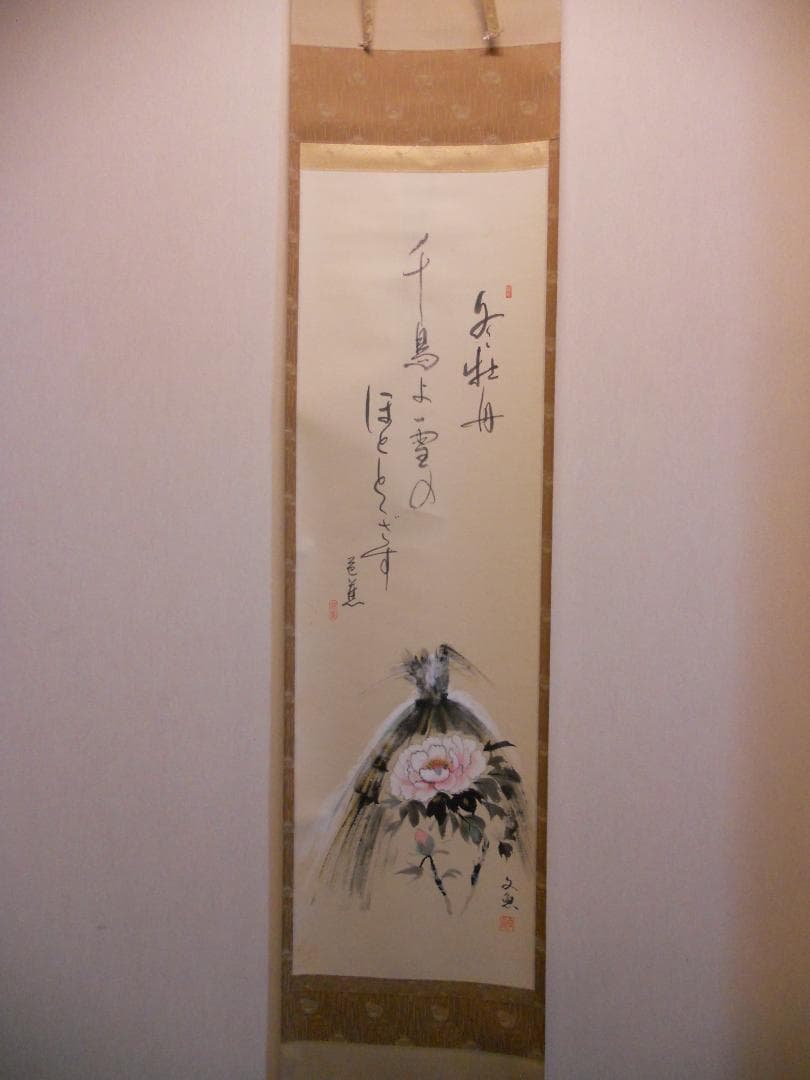 冬牡丹
千鳥よ雪の
ほととぎす
芭蕉